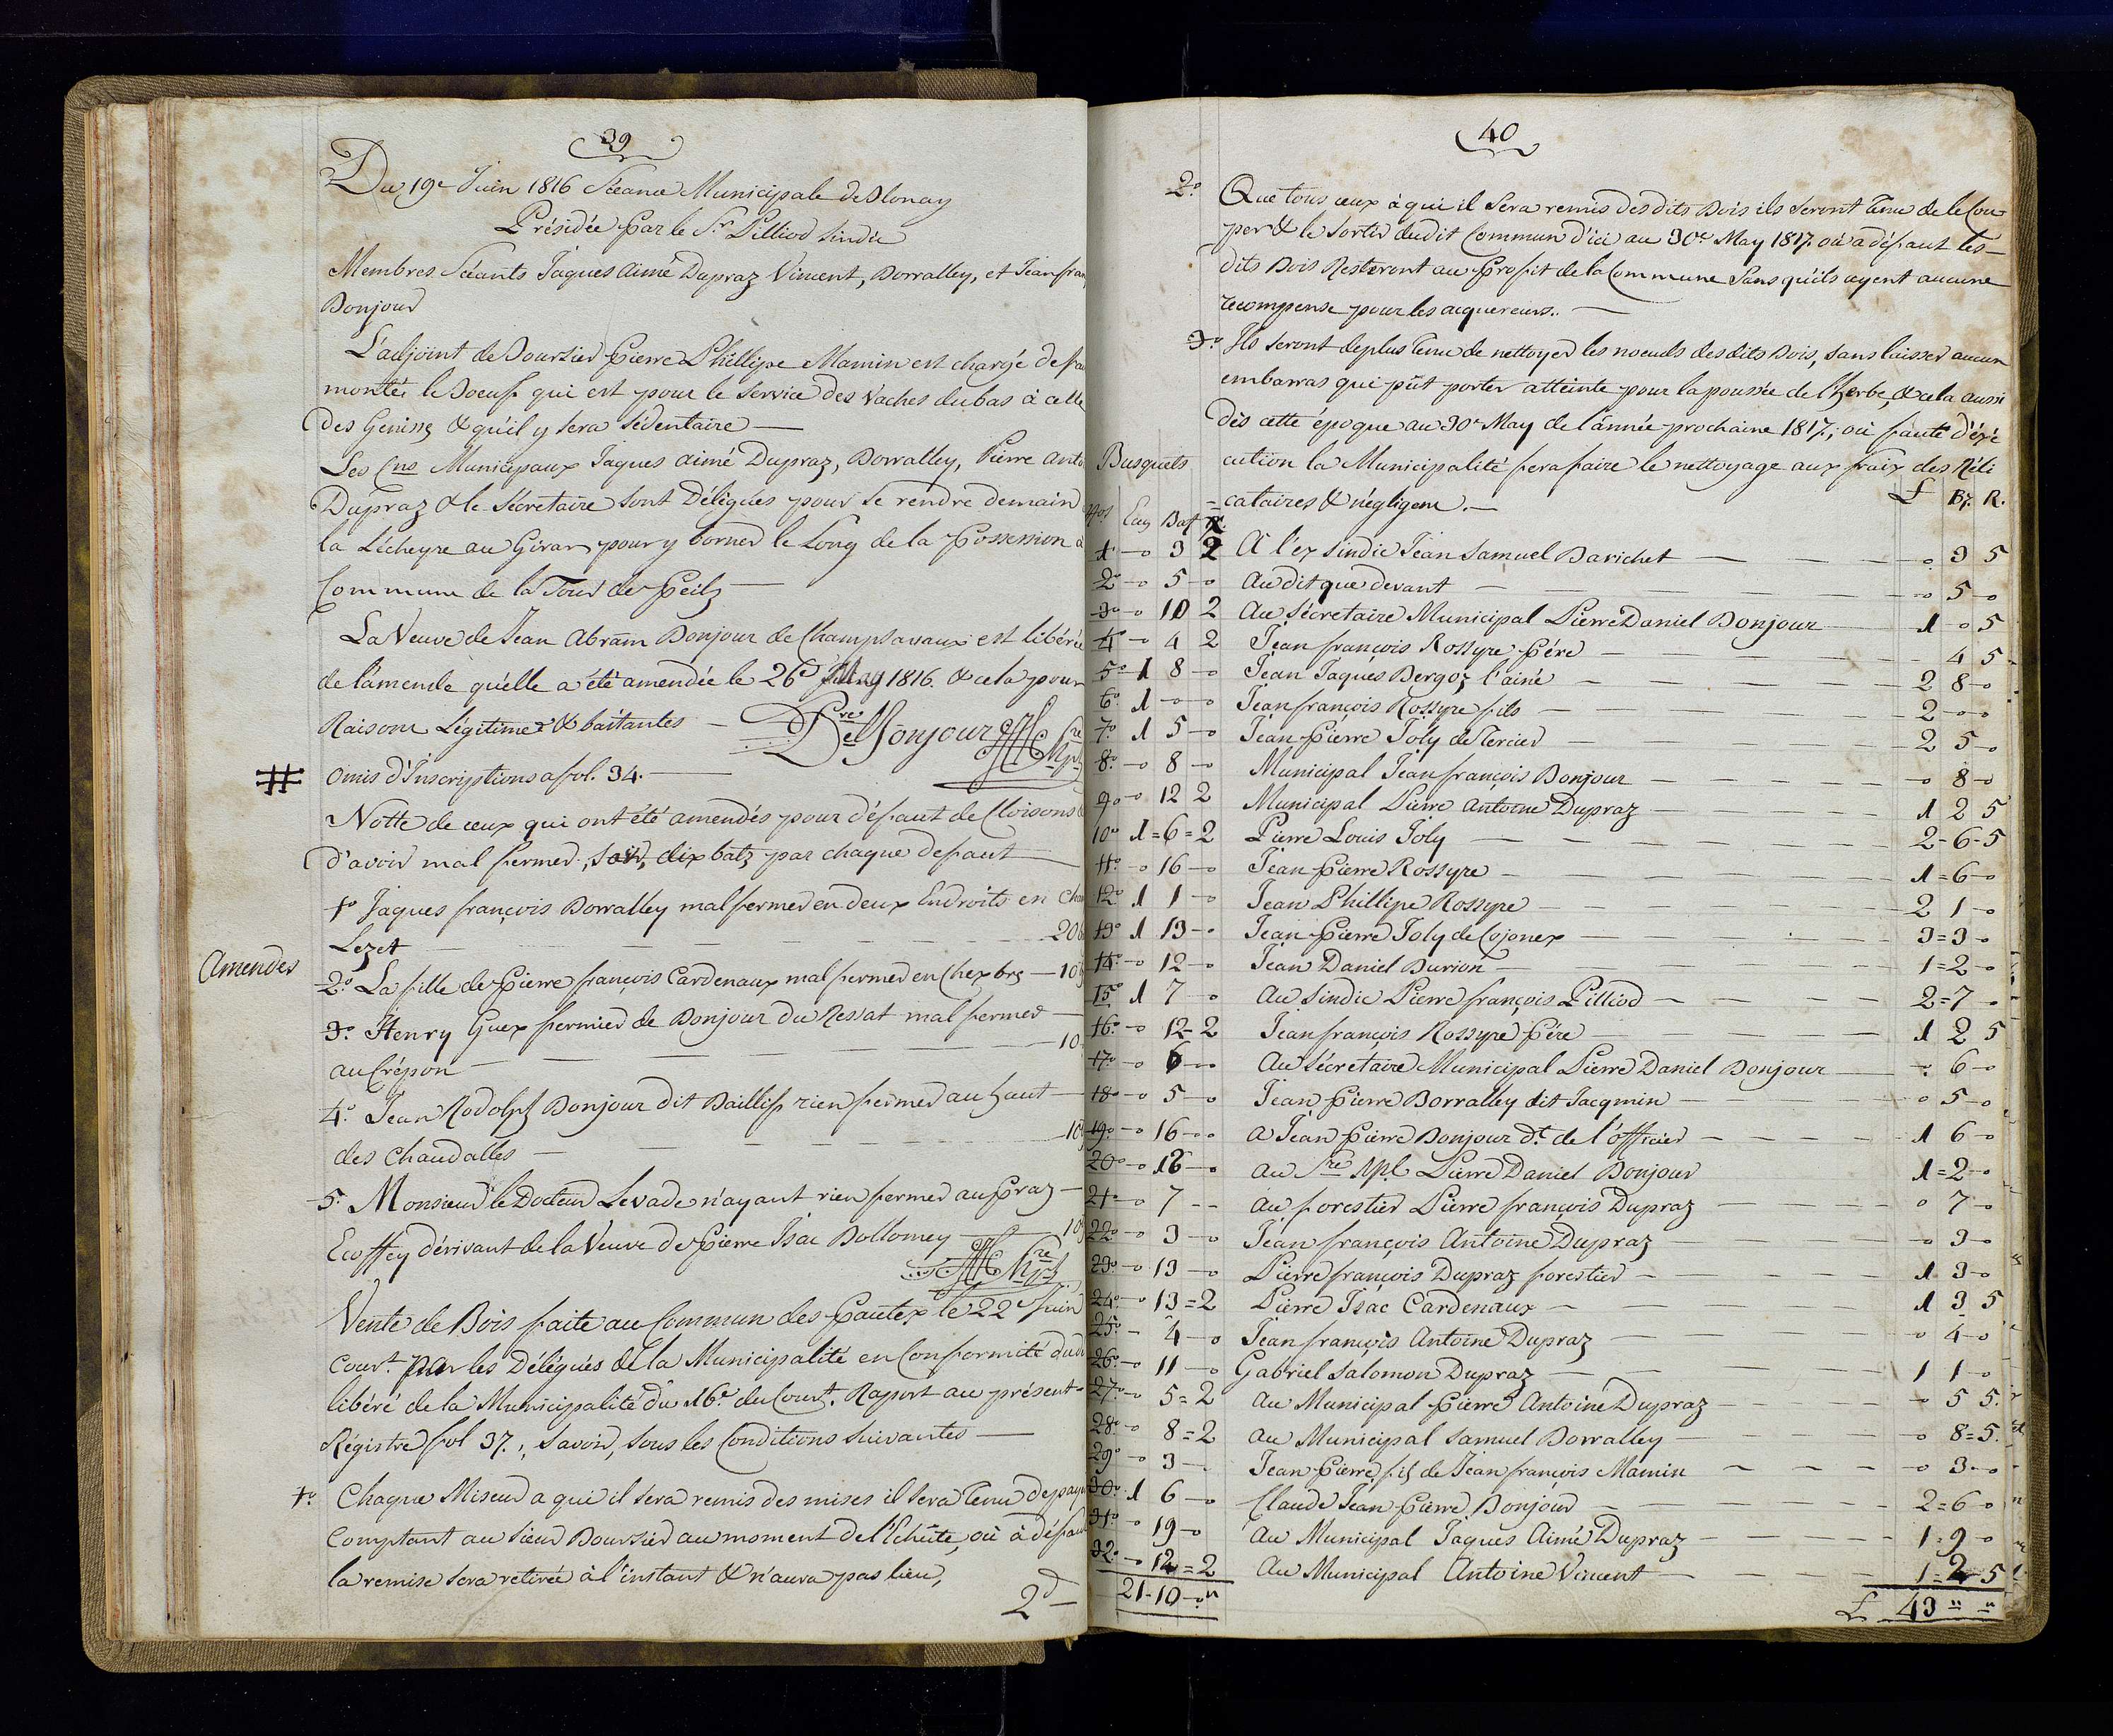 39
Du 19e Juin 1816 Séance Municipale de Blonay
Présidée par le Sr Pilliod Sindic
Membres Séants Jaques Aimé Dupraz Vincent, Borralley, et Jean fran
Bonjour
L'adjoint de Boursier Pierre Phillipe Mamin est chargé de fai
montér le Boeuf qui est pour le Service des Vaches du bas à celle
des Genisses & qu'il y sera Sédentaire —
Les Cns Municipaux Jaques aimé Dupraz, Borralley, Pierre anto
Dupraz & le Sécretaire sont Déligués pour se rendre demain
la Lécheyre au Girar pour y borner le Long de la Possession
Commune de la Tour de Peilz —
La Veuve de Jean Abram Bonjour de Champsavaux est libérée
de l'amende quélle a été amendée le 26e May 1816. & cela pour
Raisons Légitimes & bastantes — Pre Del Bonjour Sre Mpl
# omis d'Inscriptions a fol. 34. —
Notte de ceux qui ont été amendés pour défaut de Cloisons
d'avoir mal fermer, Soit, dix batz par chaque defaut
1o Jaques françois Borralley mal fermer en deux Endroits en
Lezet — 20
Amendes
2o La fille de Pierre françois Cardenaux mal fermer en Chexbres — 10
3o Henry Guex fermier de Bonjour du Ressat mal fermer —
au Crépon — 10
4o Jean Rodolph Bonjour dit Baillif rien fermer au haut —
des Chaudalles — 10
5o Monsieur le Docteur Levade n'ayant rien fermer au Praz —
Ecoffey dérivant de la Veuve de Pierre Isac Dollomey — 10
Sre Mpl
Vente de Bois faite au Commun des Pautex le 22e Juin
Court par les Délégués de la Municipalité en Conformité du
libéré de la Municipalité du 16e du Court. Raport au présent
Régistre fol 37., Savoir, sous les Conditions suivantes —
1o Chaque Miseur a qui il sera remis des mises il sera Tenu de paye
Comptant au Sieur Boursier au moment de l'Echûte, ou à défau
la remise sera retirée à l'instant & n'aura pas lieu,
2d
40
2o Que tous ceux à qui il Sera remis des dits Bois ils seront Tenu de le Cou
per & le Sortir dudit Commun d'ici au 30e May 1817. ou a défaut les
dits Bois Resteront au Profit de la Commune Sans qu'ils ayent aucune
recompense pour les acquereurs. —
3o Ils seront deplus Tenu de nettoyer les noeuds des dits Bois, sans laisser aucun
embarras qui pût porter atteinte pour la poussée de l'herbe, & cela aussi
dès cette époque au 30e May de l'année prochaine 1817; ou faute d'éxé
cution la Municipalité fera faire le nettoyage aux fraix des Réli
cataires & négligens. — £ Bz. R.
Busquets
Nos Ecus Batz
1o — o 3 2 A l'ex sindic Jean Samuel Barichet — o 3 5
2o — o 5 — o Au dit que devant — o 5 — o
3o — o 10 2 Au Sécretaire Municipal Pierre Daniel Bonjour 1 — o 5
4o — o 4 2 Jean françois Rossyre Pére — 4 5
5o — 1 8 — o Jean Jaques Bergoz l'ainé — 2 8 — o
6o 1 — o — o Jean françois Rossyre fils — 2 — o — o
7o 1 5 — o Jean Pierre Joly de Tercier — 2 5 — o
8o — o 8 — o Municipal Jean françois Bonjour — o 8 — o
9o — o 12 2 Municipal Pierre Antoine Dupraz — 1 2 5
10o 1=6=2 Pierre Louis Joly — 2-6-5
11o — o 16 — o Jean Pierre Rossyre — 1=6 — o
12o 1 1 — o Jean Phillipe Rossyre — 2 1 — o
13o 1 13 — o Jean Pierre Joly de Cojonex — 3=3 — o
14o — o 12 — o Jean Daniel Burion — 1=2 — o
15o 1 7 — o Au Sindic Pierre françois Pilliod — 2=7 — o
16o — o 12-2 Jean françois Rossyre Pére — 1 2 5
17o — o 6 — o Au Sécretaire Municipal Pierre Daniel Bonjour — o 6 — o
18o — o 5 — o Jean Pierre Borralley dit Jacqmin — o 5 — o
19o — o 16 — o A Jean Pierre Bonjour dt de l'officier — 1 6 — o
20o — o 12 — o au Sre Mpl Pierre Daniel Bonjour 1=2 — o
21o — o 7 — au forestier Pierre françois Dupraz — o 7 — o
22o — o 3 — o Jean françois Antoine Dupraz — o 3 — o
23o — o 13 — o Pierre françois Dupraz forestier — 1 3 — o
24o — o 13=2 Pierre Isac Cardenaux — 1 3 5
25o — 4 — o Jean françois Antoine Dupraz — o 4 — o
26o — o 11 — o Gabriel Salomon Dupraz — 1 1 — o
27o — o 5=2 Au Municipal Pierre Antoine Dupraz — o 5 5.
28o — o 8=2 au Municipal Samuel Borralley — o 8=5.
29o — o 3 — Jean Pierre, fils de Jean françois Mamin — o 3 — o
30o 1 6 — o Claude Jean Pierre Bonjour — 2=6 — o
31o — o 19 — o Au Municipal Jaques Aimé Dupraz — 1=9 — o
32o — o 12=2 Au Municipal Antoine Vincent — 1=2-5
21-10-o £ 43 " "